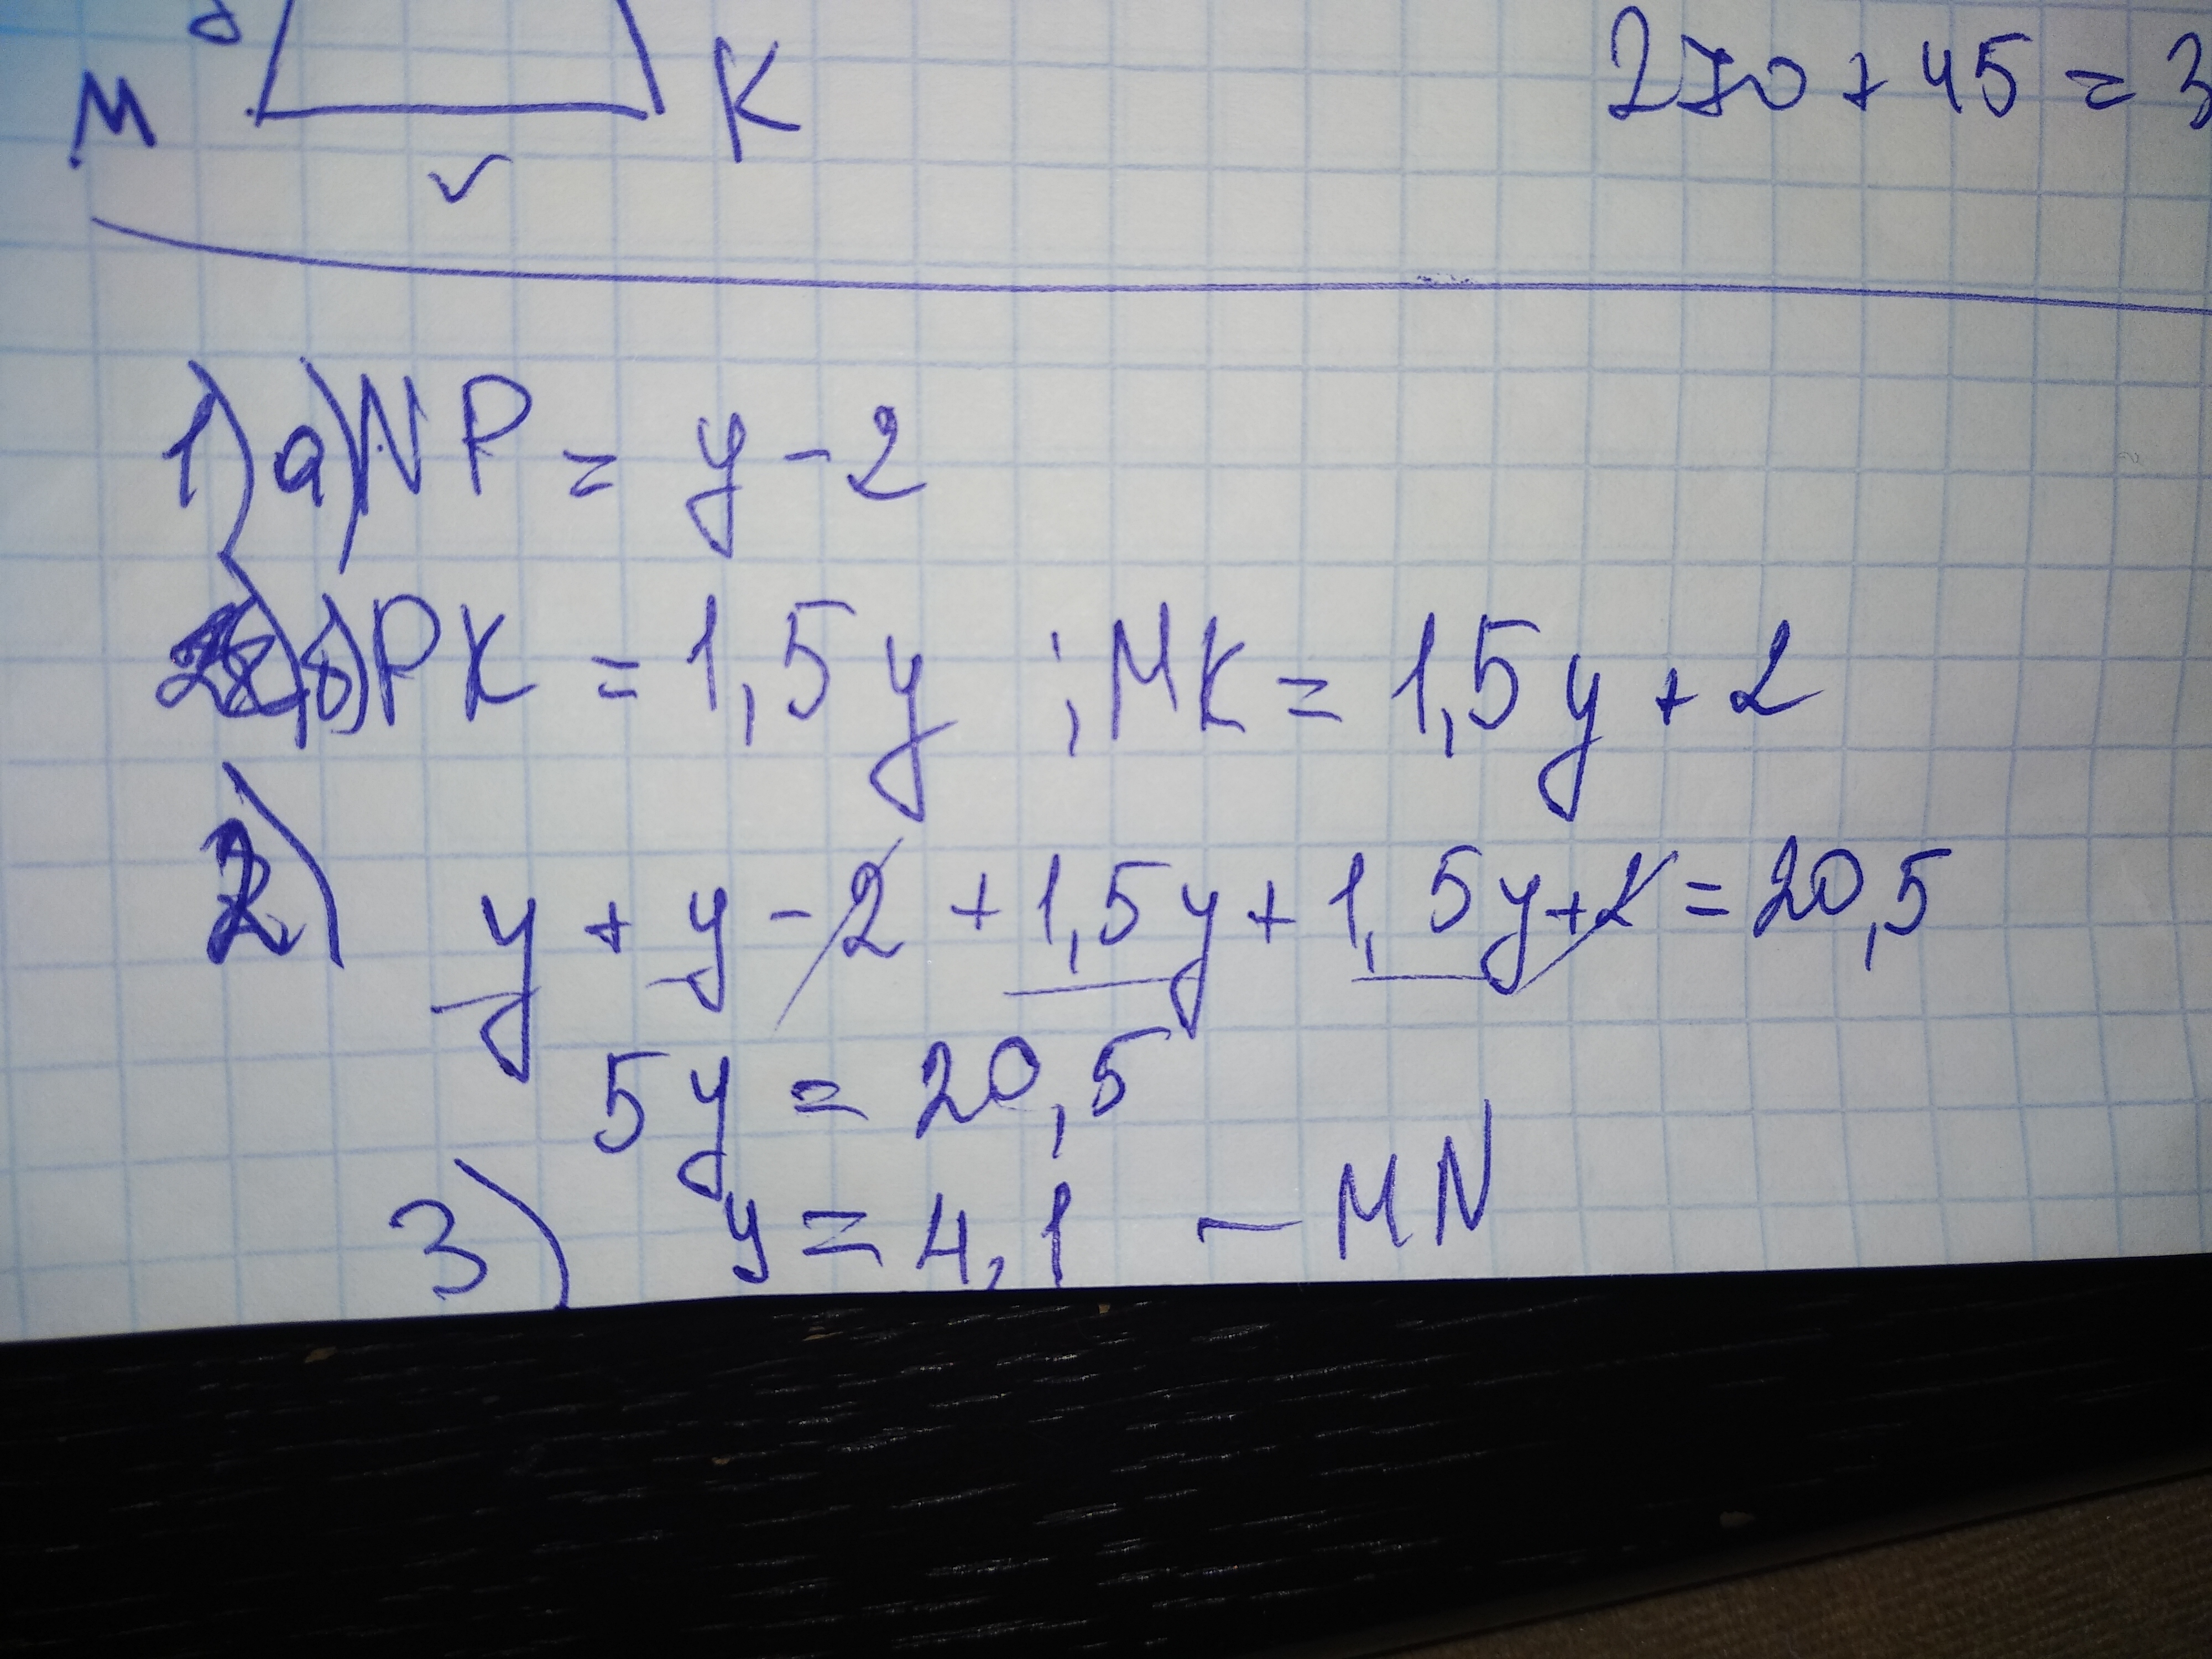 M K
270 + 45 = 3
1) а) NP = y - 2
б) PK = 1,5y ; MK = 1,5y + 2
2) y + y - 2 + 1,5y + 1,5y + 2 = 20,5
5y = 20,5
3) y = 4,1 - MN